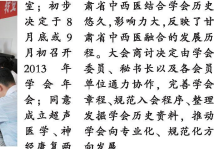 室；初步
决定于 8
月底或 9
月初召开
2013 年
学会年
会；同意
成立超声
医学、神
经康复两
肃省中西医结合学会历史
悠久，影响力大，反映了甘
肃省中西医融合的发展历
程。大会商讨决定由学会
委员、秘书长以及各会员
单位通力协作，完善学会
章程、规范入会程序、整理
发掘学会历史资料，推动
学会向专业化、规范化方
向发展